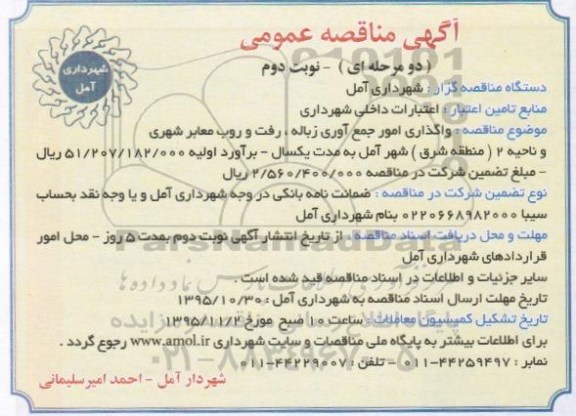 آگهی مناقصه عمومی
( دو مرحله ای ) - نوبت دوم
شهرداری
آمل
دستگاه مناقصه گزار : شهرداری آمل
منابع تامین اعتبار : اعتبارات داخلی شهرداری
موضوع مناقصه : واگذاری امور جمع آوری زباله ، رفت و روب معابر شهری
و ناحیه ۲ ( منطقه شرق ) شهر آمل به مدت یکسال - برآورد اولیه ۵۱/۲۰۷/۱۸۲/۰۰۰ ریال
- مبلغ تضمین شرکت در مناقصه ۲/۵۶۰/۴۰۰/۰۰۰ ریال
نوع تضمین شرکت در مناقصه : ضمانت نامه بانکی در وجه شهرداری آمل و یا وجه نقد بحساب
سیبا ۰۲۲۰۶۶۸۹۸۲۰۰۰ بنام شهرداری آمل
مهلت و محل دریافت اسناد مناقصه : از تاریخ انتشار آگهی نوبت دوم بمدت ۵ روز - محل امور
قراردادهای شهرداری آمل
سایر جزئیات و اطلاعات در اسناد مناقصه قید شده است .
تاریخ مهلت ارسال اسناد مناقصه به شهرداری آمل : ۱۳۹۵/۱۰/۳۰
تاریخ تشکیل کمیسیون معاملات : ساعت ۱۰ صبح مورخ ۱۳۹۵/۱۱/۲
برای اطلاعات بیشتر به پایگاه ملی مناقصات و سایت شهرداری www.amol.ir رجوع گردد .
نمابر : ۴۴۲۵۹۴۹۷-۰۱۱ - تلفن : ۴۴۲۲۹۰۰۷-۰۱۱
شهردار آمل - احمد امیرسلیمانی
ParsNamadData